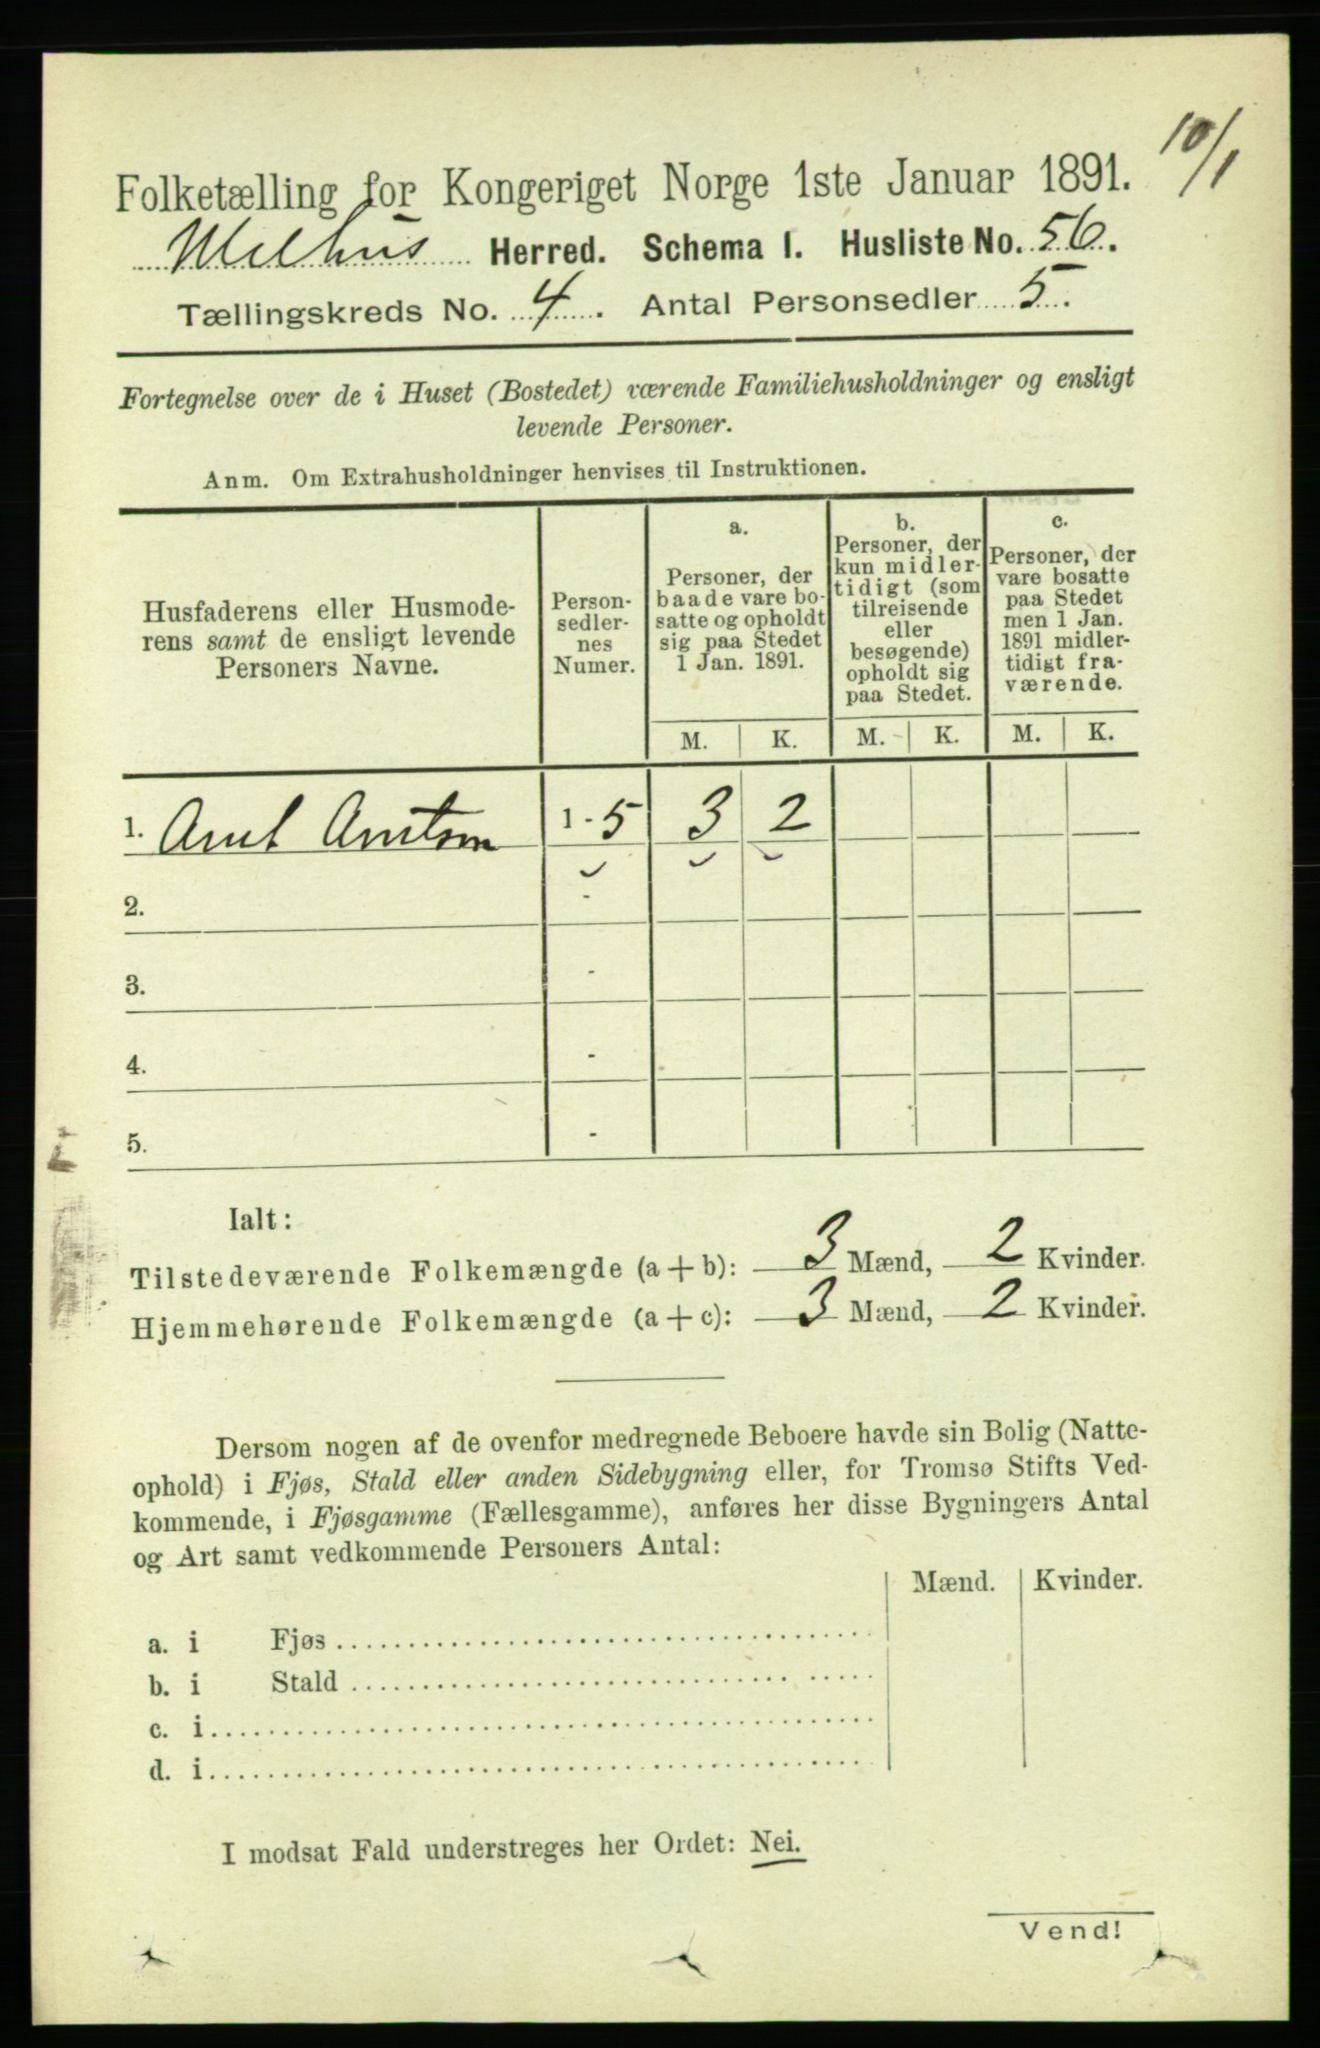 10/1
Folketælling for Kongeriget Norge 1ste Januar 1891.
Melhus Herred. Schema I. Husliste No. 56.
Tællingskreds No. 4. Antal Personsedler 5.
Fortegnelse over de i Huset (Bostedet) værende Familiehusholdninger og ensligt
levende Personer.
Anm. Om Extrahusholdninger henvises til Instruktionen.
Husfaderens eller Husmode-
rens samt de ensligt levende
Personers Navne.
Person-
sedler-
nes
Numer.
a.
Personer, der
baade vare bo-
satte og opholdt
sig paa Stedet
1 Jan. 1891.
b.
Personer, der
kun midler-
tidigt (som
tilreisende
eller
besøgende)
opholdt sig
paa Stedet.
c.
Personer, der
vare bosatte
paa Stedet
men 1 Jan.
1891 midler-
tidigt fra-
værende.
M. K. M. K. M. K.
1. Arnt Arntsen 1-5 3 2
2. -
3. -
4. -
5. -
Ialt:
Tilstedeværende Folkemængde (a + b): 3 Mænd, 2 Kvinder.
Hjemmehørende Folkemængde (a + c): 3 Mænd, 2 Kvinder.
Dersom nogen af de ovenfor medregnede Beboere havde sin Bolig (Natte-
ophold) i Fjøs, Stald eller anden Sidebygning eller, for Tromsø Stifts Ved-
kommende, i Fjøsgamme (Fællesgamme), anføres her disse Bygningers Antal
og Art samt vedkommende Personers Antal:
Mænd. Kvinder.
a. i Fjøs
b. i Stald
c. i
d. i
I modsat Fald understreges her Ordet: Nei.
Vend!